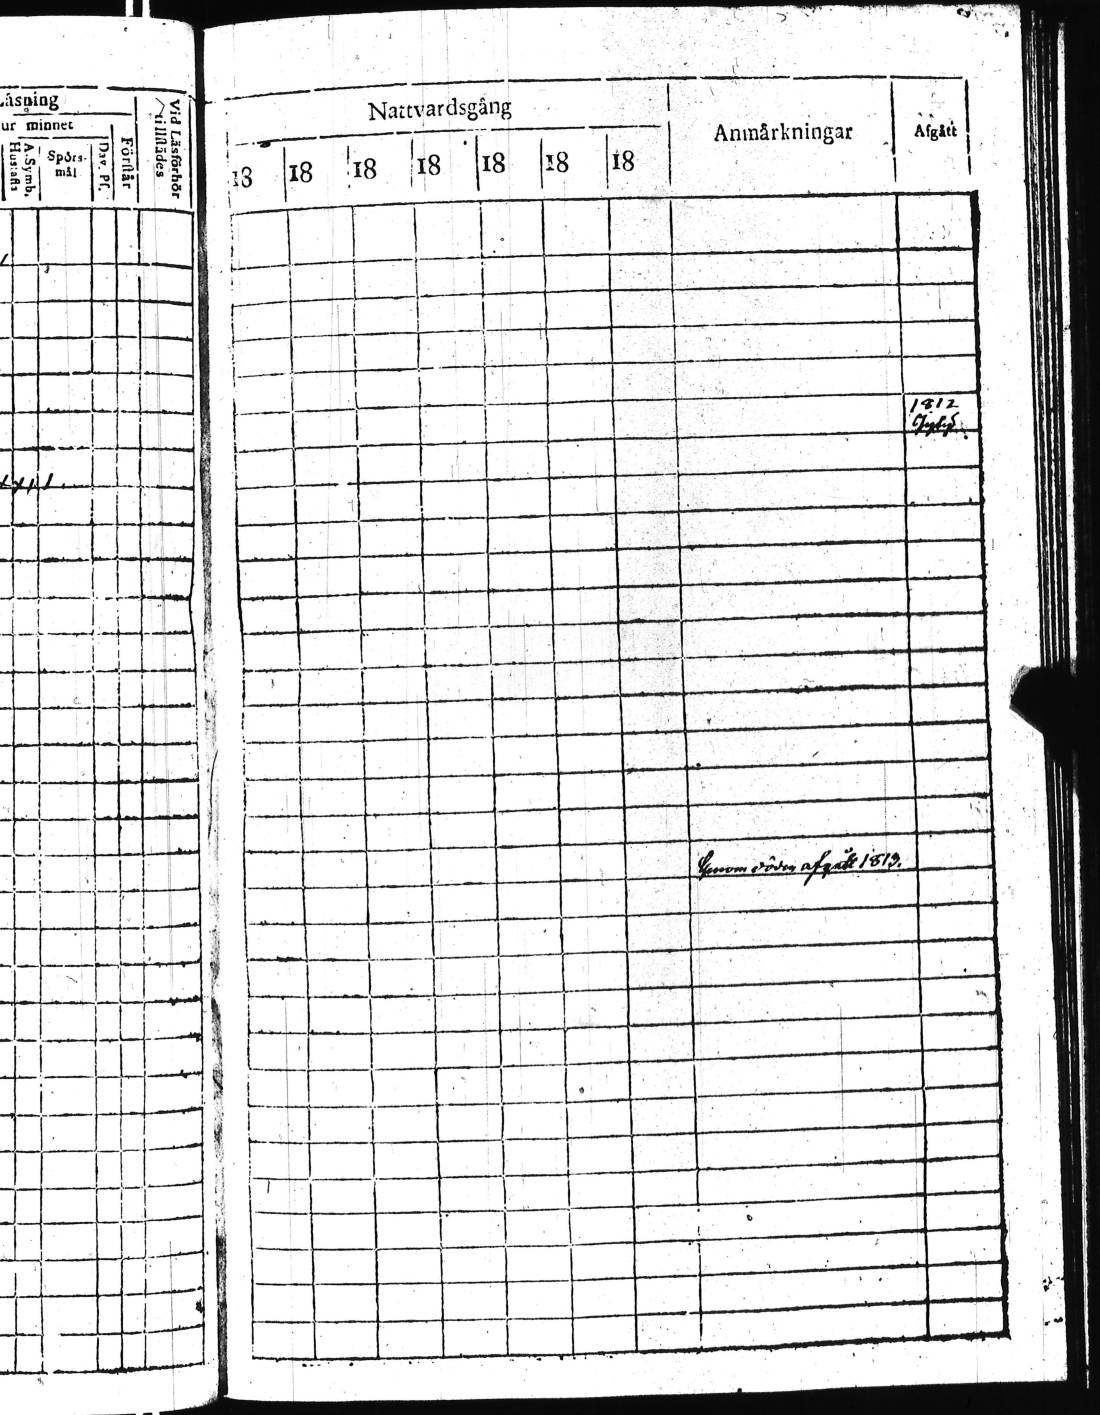 Läsning
ur minnet
A. Symb.
Hustafla
Spörs-
mål
Dav. Ps.
Förstår
Vid Läsförhör
tillstädes
Nattvardsgång
18 18 18 18 18 18 18
Anmärkningar
Afgått
1812
Genom döden afgått 1813.